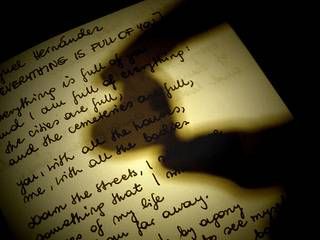 guel Hernández
EVERYTHING IS FULL OF YOU
everything is full of you
and I am full of everything:
the cities are full,
and the cemeteries are full,
you, with all the houses,
me, with all the bodies
Down the streets, I
something that I
of my life
far away.
by agony
to see myself